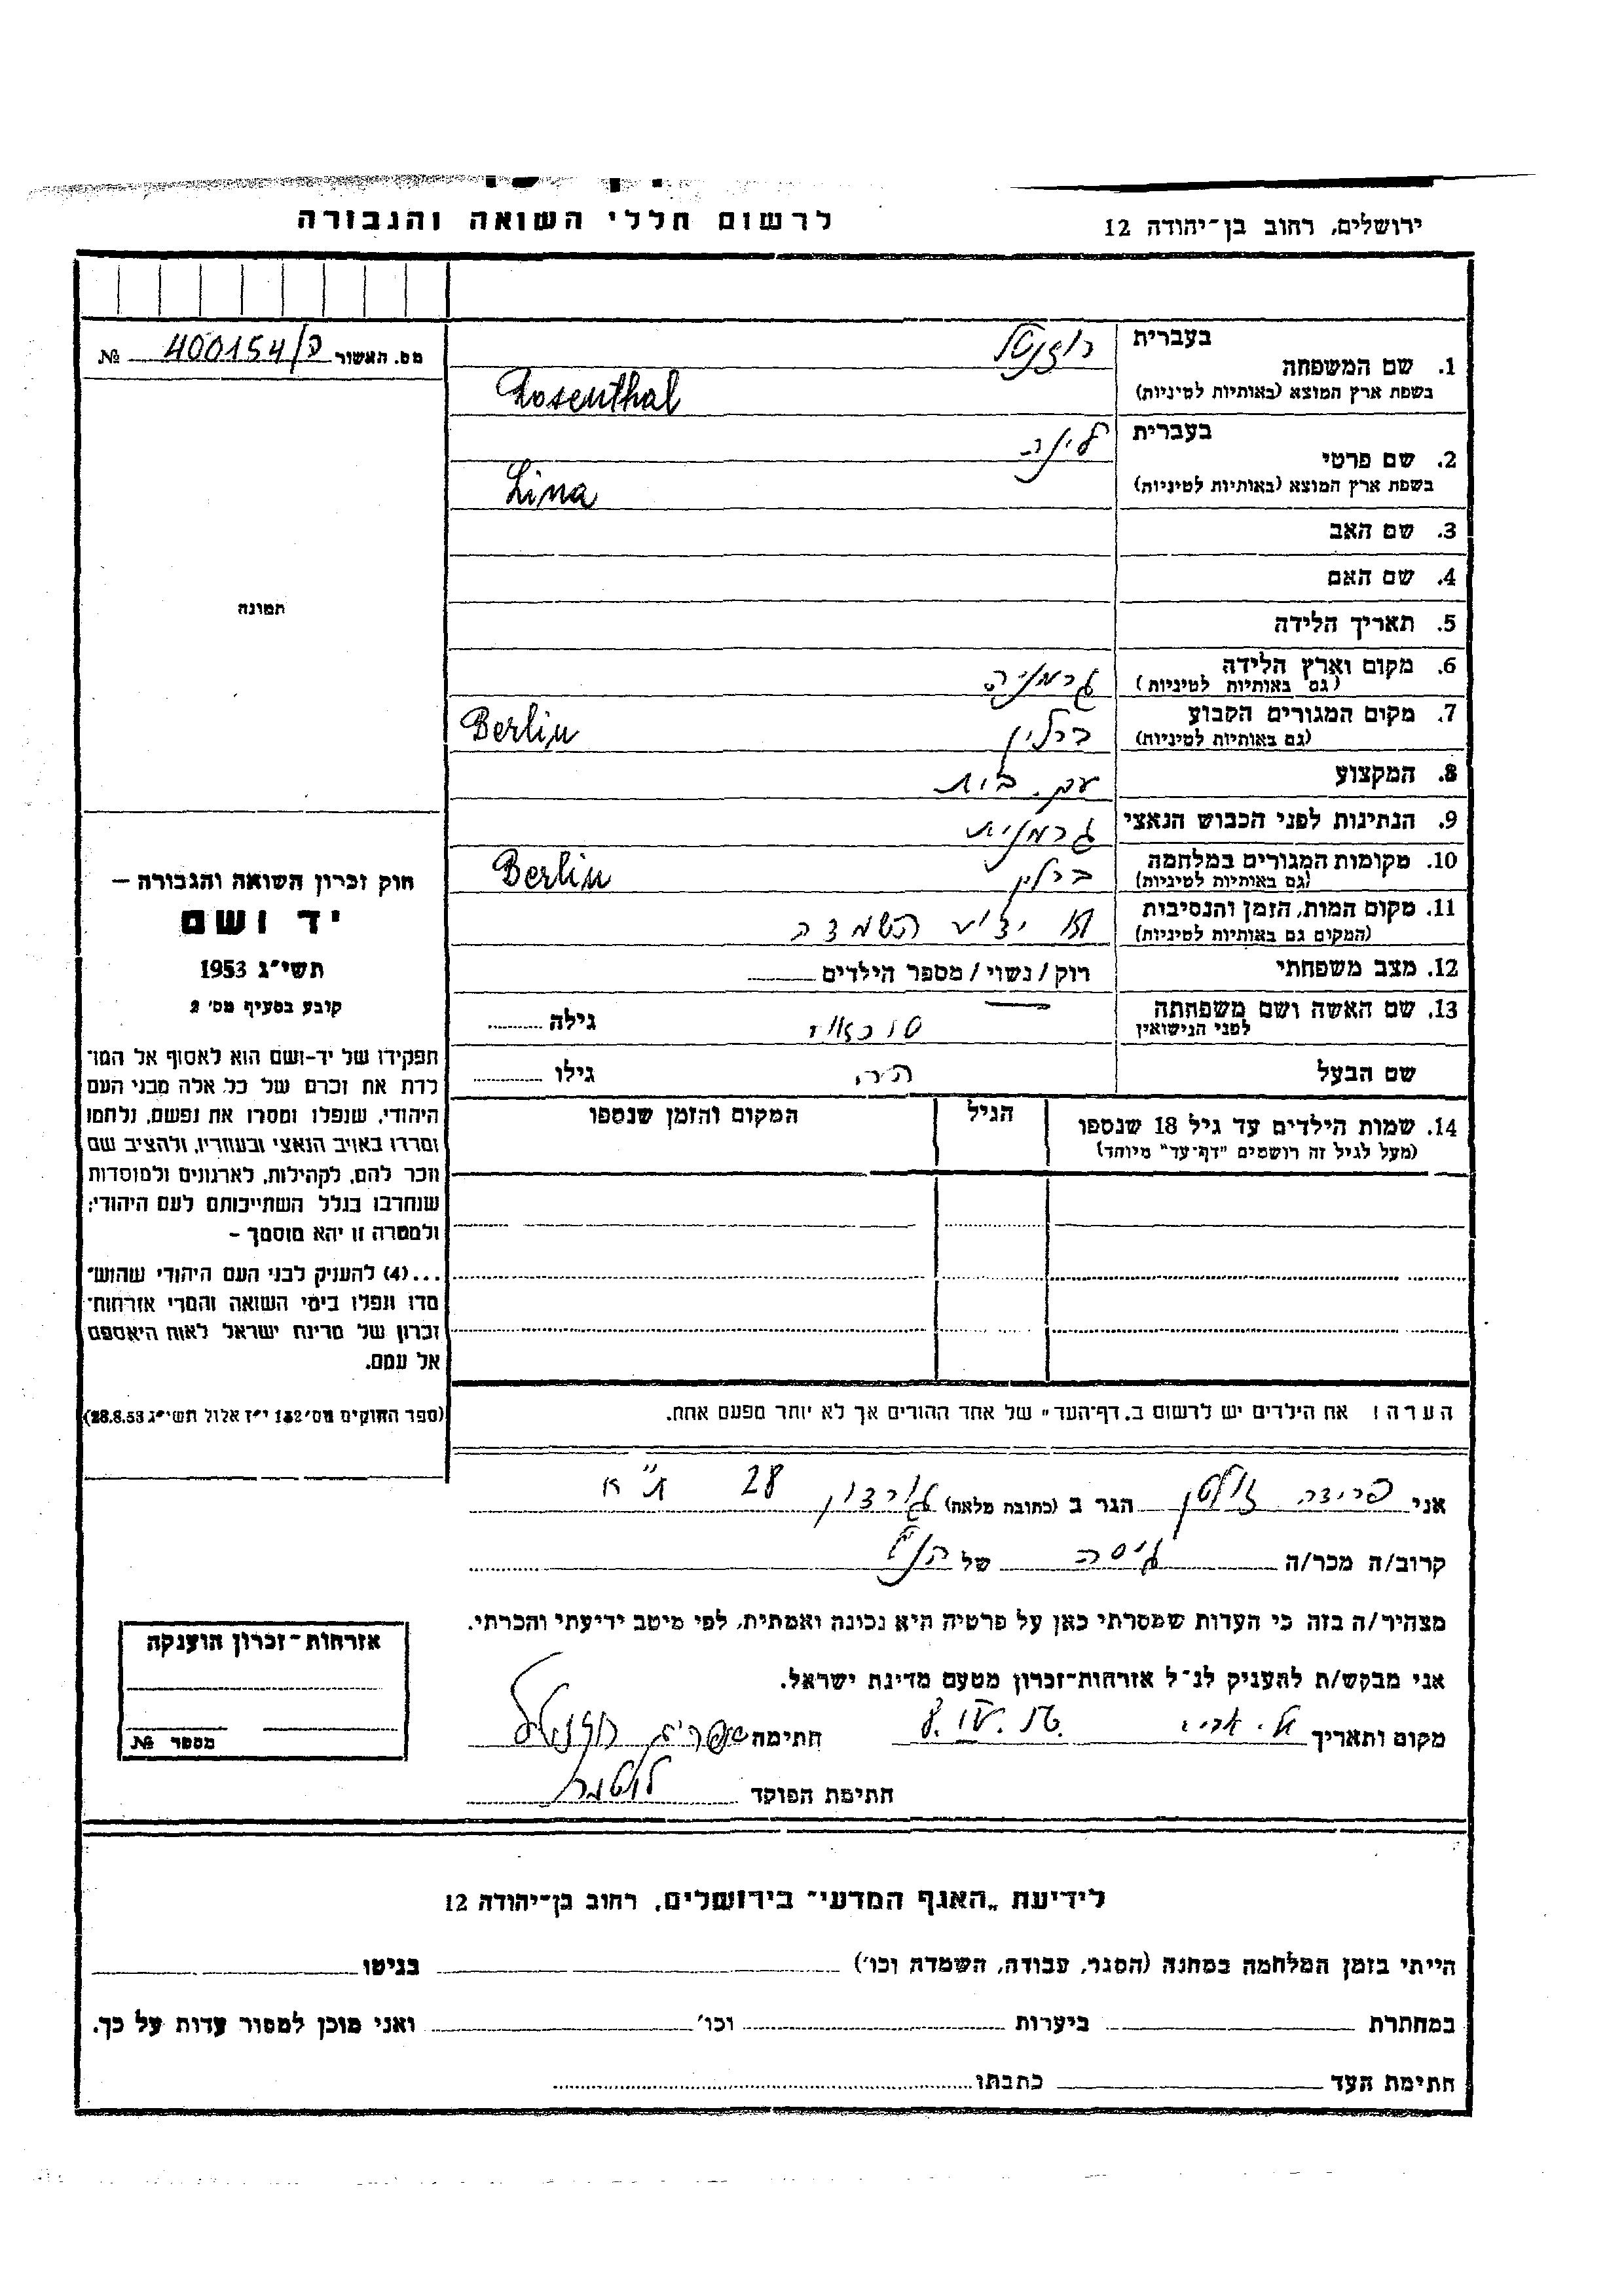 לרשום חללי השואה והגבורה
ירושלים, רחוב בן־יהודה 12
מס. האשור פ/400154 №
תמונה
חוק זכרון השואה והגבורה –
יד ושם
תשי״ג 1953
קובע בסעיף מס׳ 2
תפקידו של יד-ושם הוא לאסוף אל המו־
לדת את זכרם של כל אלה מבני העם
היהודי, שנפלו ומסרו את נפשם, נלחמו
ומרדו באויב הנאצי ובעוזריו, ולהציב שם
וזכר להם, לקהילות, לארגונים ולמוסדות
שנחרבו בגלל השתייכותם לעם היהודי;
ולמטרה זו יהא מוסמך –
...(4) להעניק לבני העם היהודי שהוש־
מדו ונפלו בימי השואה והמרי אזרחות־
זכרון של מדינת ישראל לאות היאספם
אל עמם.
(ספר החוקים מס׳ 132 י״ז אלול תשי״ג 28.8.53)
בעברית
1. שם המשפחה רוזנטל
בשפת ארץ המוצא (באותיות לטיניות) Rosenthal
בעברית
2. שם פרטי לינה
בשפת ארץ המוצא (באותיות לטיניות) Lina
3. שם האב
4. שם האם
5. תאריך הלידה
6. מקום וארץ הלידה גרמניה
(גם באותיות לטיניות)
7. מקום המגורים הקבוע ברלין Berlin
(גם באותיות לטיניות)
8. המקצוע עק. בית
9. הנתינות לפני הכבוש הנאצי גרמנית
10. מקומות המגורים במלחמה ברלין Berlin
(גם באותיות לטיניות)
11. מקום המות, הזמן והנסיבות לא ידוע השמדה
(המקום גם באותיות לטיניות)
12. מצב משפחתי רוק / נשוי / מספר הילדים
13. שם האשה ושם משפחתה גילה
לפני הנישואין
שם הבעל גילו
14. שמות הילדים עד גיל 18 שנספו הגיל המקום והזמן שנספו
(מעל לגיל זה רושמים "דף־עד" מיוחד)
הערה: את הילדים יש לרשום ב„דף־העד" של אחד ההורים אך לא יותר מפעם אחת.
אני פרידה הגר ב (כתובת מלאה) גורדון 28 ת״א
קרוב/ה מכר/ה גיסה של הנ״ל
מצהיר/ה בזה כי העדות שמסרתי כאן על פרטיה היא נכונה ואמתית, לפי מיטב ידיעתי והכרתי.
אני מבקש/ת להעניק לנ״ל אזרחות־זכרון מטעם מדינת ישראל.
מקום ותאריך תל אביב חתימה
חתימת הפוקד
אזרחות־זכרון הוענקה
מספר №
לידיעת „האגף המדעי" בירושלים, רחוב בן־יהודה 12
הייתי בזמן המלחמה במחנה (הסגר, עבודה, השמדה וכו׳) בגיטו
במחתרת ביערות וכו׳ ואני מוכן למסור עדות על כך.
חתימת העד כתבתו